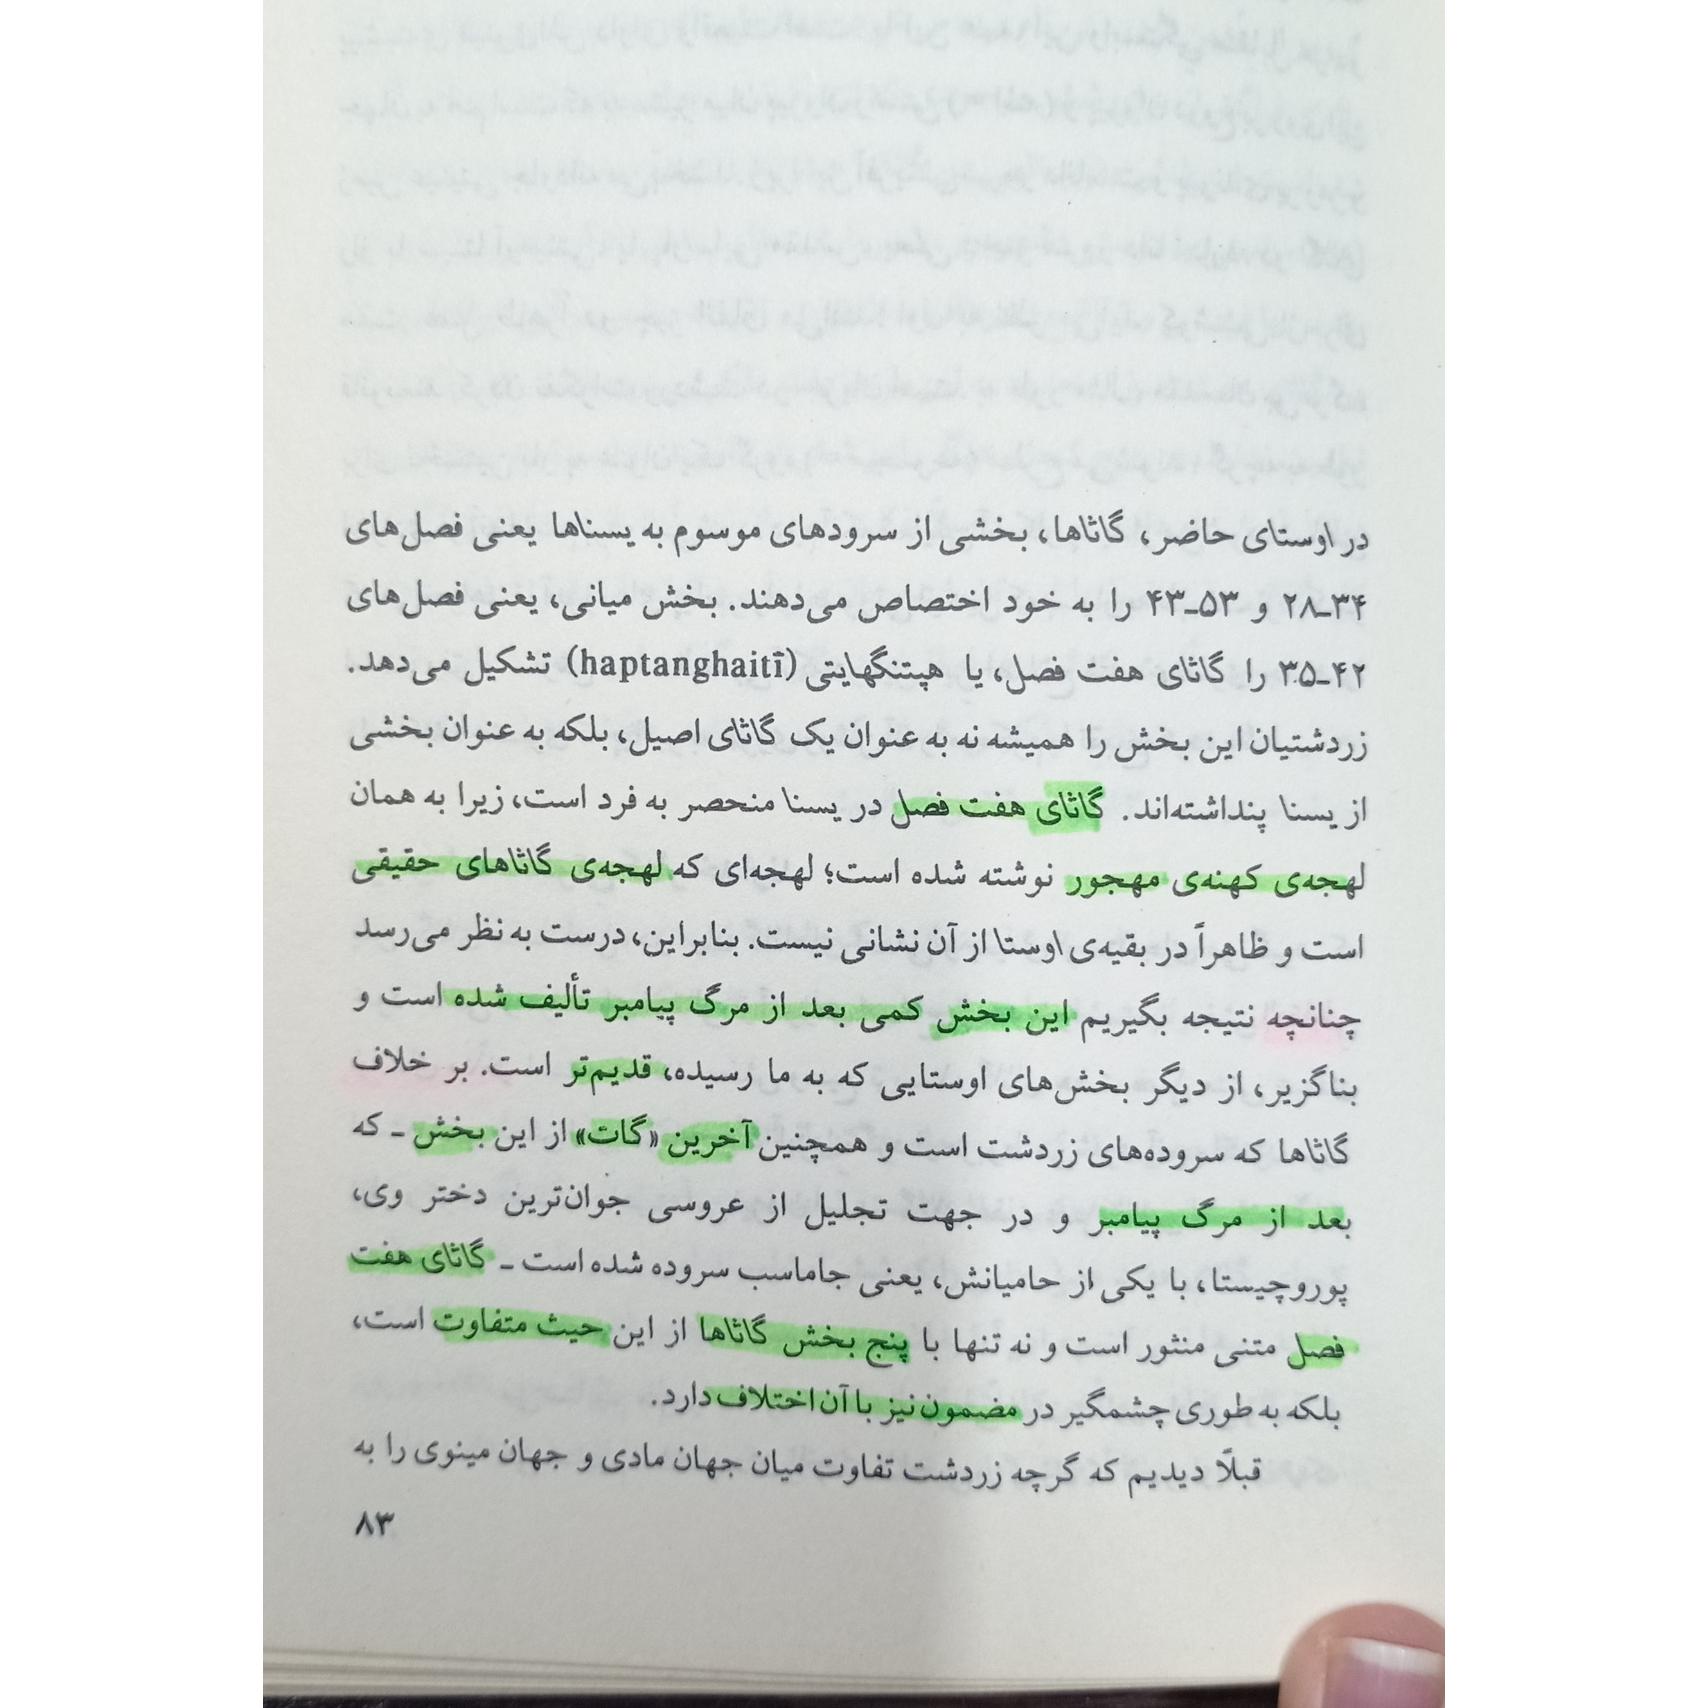 در اوستای حاضر، گاثاها، بخشی از سرودهای موسوم به یسناها یعنی فصل‌های
۲۸ـ۳۴ و ۴۳ـ۵۳ را به خود اختصاص می‌دهند. بخش میانی، یعنی فصل‌های
۳۵ـ۴۲ را گاثای هفت فصل، یا هپتنگهایتی (haptanghaitī) تشکیل می‌دهد.
زردشتیان این بخش را همیشه نه به عنوان یک گاثای اصیل، بلکه به عنوان بخشی
از یسنا پنداشته‌اند. گاثای هفت فصل در یسنا منحصر به فرد است، زیرا به همان
لهجه‌ی کهنه‌ی مهجور نوشته شده است؛ لهجه‌ای که لهجه‌ی گاثاهای حقیقی
است و ظاهراً در بقیه‌ی اوستا از آن نشانی نیست. بنابراین، درست به نظر می‌رسد
چنانچه نتیجه بگیریم این بخش کمی بعد از مرگ پیامبر تألیف شده است و
بناگزیر، از دیگر بخش‌های اوستایی که به ما رسیده، قدیم‌تر است. بر خلاف
گاثاها که سروده‌های زردشت است و همچنین آخرین «گات» از این بخش ـ که
بعد از مرگ پیامبر و در جهت تجلیل از عروسی جوان‌ترین دختر وی،
پوروچیستا، با یکی از حامیانش، یعنی جاماسب سروده شده است ـ گاثای هفت
فصل متنی منثور است و نه تنها با پنج بخش گاثاها از این حیث متفاوت است،
بلکه به طوری چشمگیر در مضمون نیز با آن اختلاف دارد.
قبلاً دیدیم که گرچه زردشت تفاوت میان جهان مادی و جهان مینوی را به
۸۳